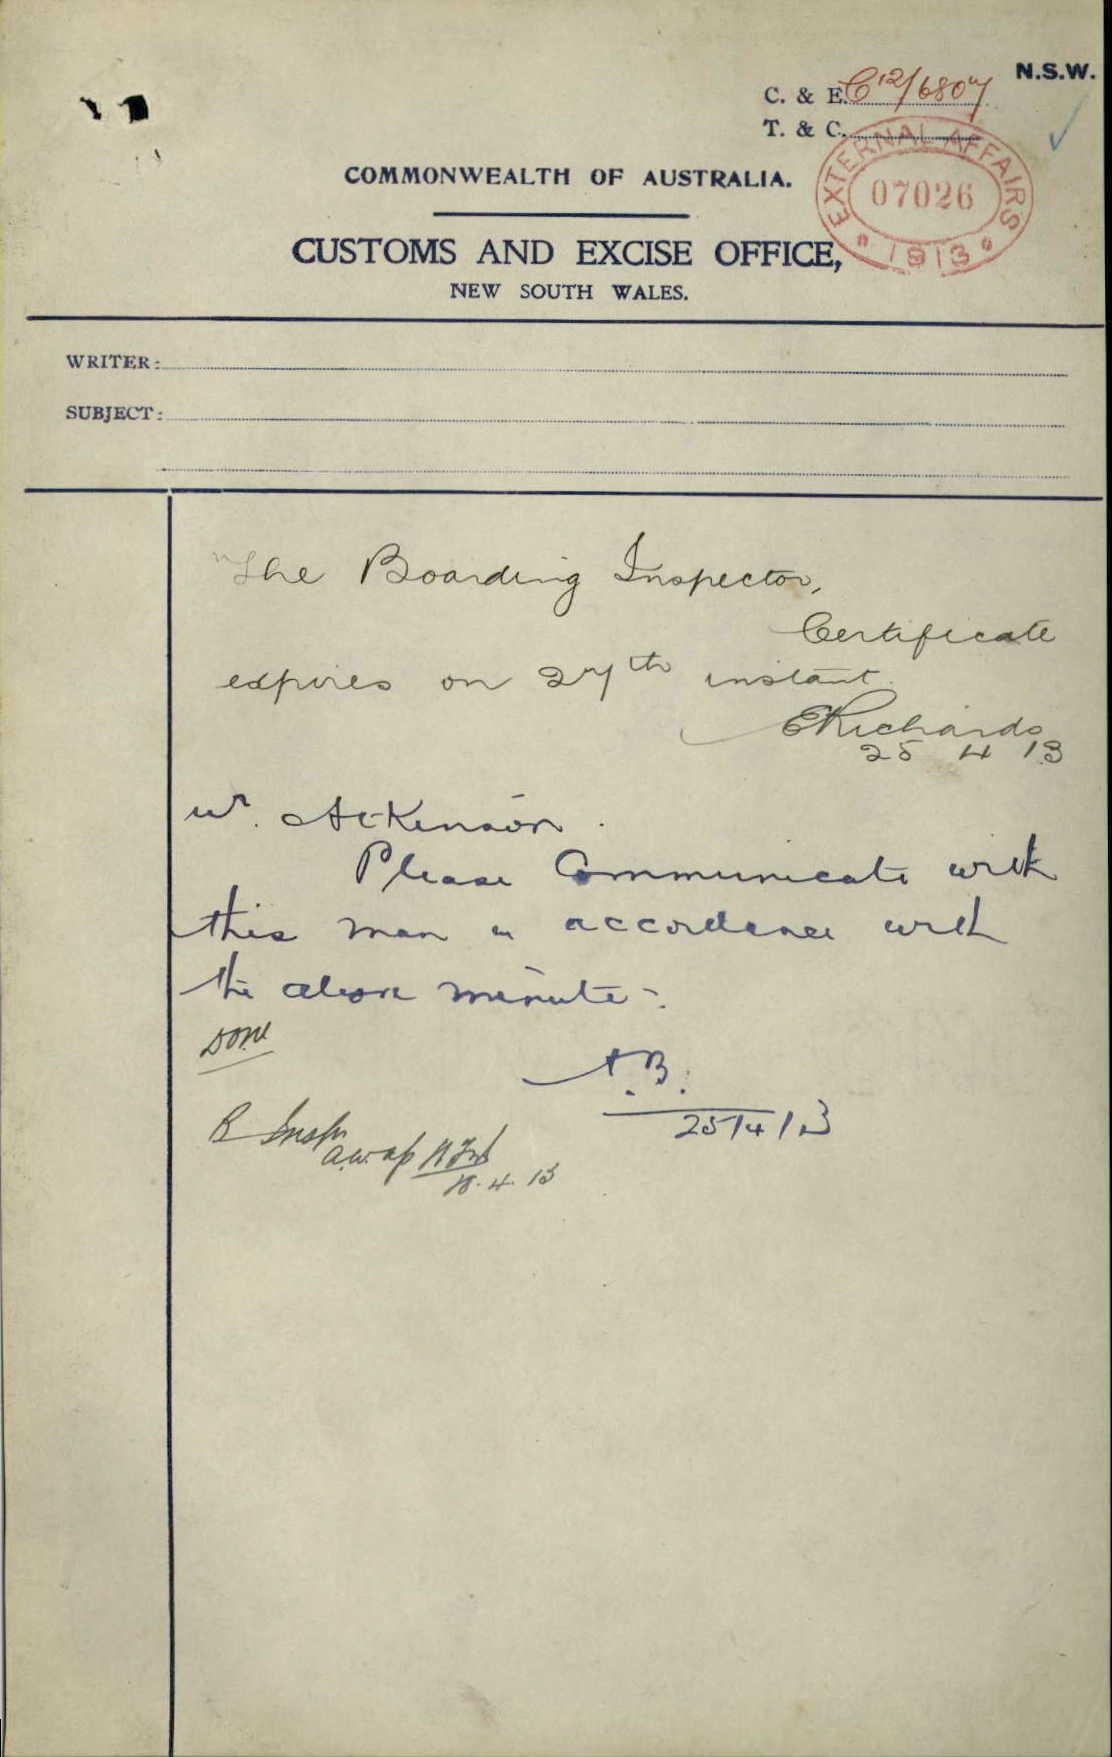 N.S.W.
C. & E. C12/6807
T. & C.
EXTERNAL AFFAIRS
07026
1913
COMMONWEALTH OF AUSTRALIA.
CUSTOMS AND EXCISE OFFICE,
NEW SOUTH WALES.
WRITER:
SUBJECT:
The Boarding Inspector,
Certificate
expires on 27th instant.
ERichards
25 4 13
Mr. Atkinson.
Please Communicate with
this man in accordance with
the above minute.
Done
A.B.
25/4/13
B Inspr
4. 13